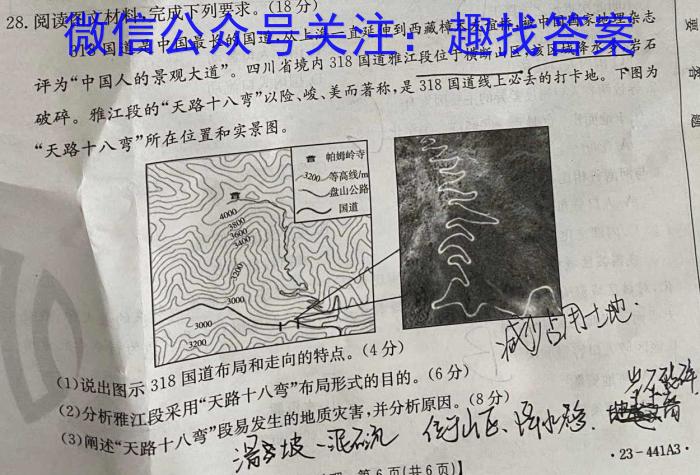 28. 阅读图文材料,完成下列要求。(18分)
微信公众号关注:趣找答案
318国道是中国最长的国道,从上海一直延伸到西藏樟木
国家地理杂志
评为“中国人的景观大道”。四川省境内318国道雅江段位于横断山区,该区域降水多,岩石
破碎。雅江段的“天路十八弯”以险、峻、美而著称,是318国道线上必去的打卡地。下图为
“天路十八弯”所在位置和实景图。
帕姆岭寺
3200 等高线/m
盘山公路
国道
4000
3800
3600
3400
3200
3000
3000
3200
3000
减少占用土地.
(1)说出图示318国道布局和走向的特点。(4分)
(2)分析雅江段采用“天路十八弯”布局形式的目的。(6分)
(3)阐述“天路十八弯”段易发生的地质灾害,并分析原因。(8分)
岩石破碎
滑坡 泥石流 位于山区、降水多、
·23-441A3·
第6页(共6页)】